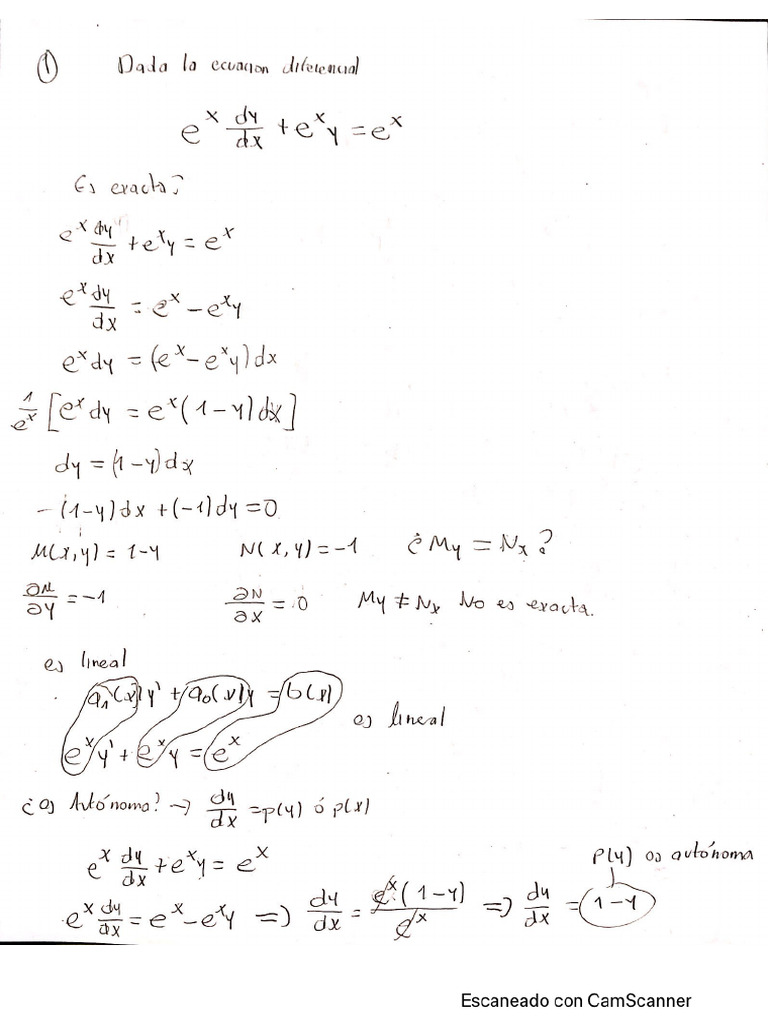 ① Dada la ecuacion diferencial
e^x dy/dx + e^x y = e^x
Es exacta?
e^x dy/dx + e^x y = e^x
e^x dy/dx = e^x - e^x y
e^x dy = (e^x - e^x y) dx
1/e^x [e^x dy = e^x (1-y) dx]
dy = (1-y) dx
- (1-y) dx + (-1) dy = 0
M(x,y) = 1-y N(x,y) = -1 ¿ My = Nx ?
∂M/∂y = -1 ∂N/∂x = 0 My ≠ Nx No es exacta.
es lineal
a₁(x) y' + a₀(x) y = b(x)
es lineal
e^x y' + e^x y = e^x
¿es Autónoma? → dy/dx = p(y) ó p(x)
e^x dy/dx + e^x y = e^x
P(y) es autónoma
e^x dy/dx = e^x - e^x y ⇒ dy/dx = e^x (1-y)/e^x ⇒ dy/dx = 1-y
Escaneado con CamScanner